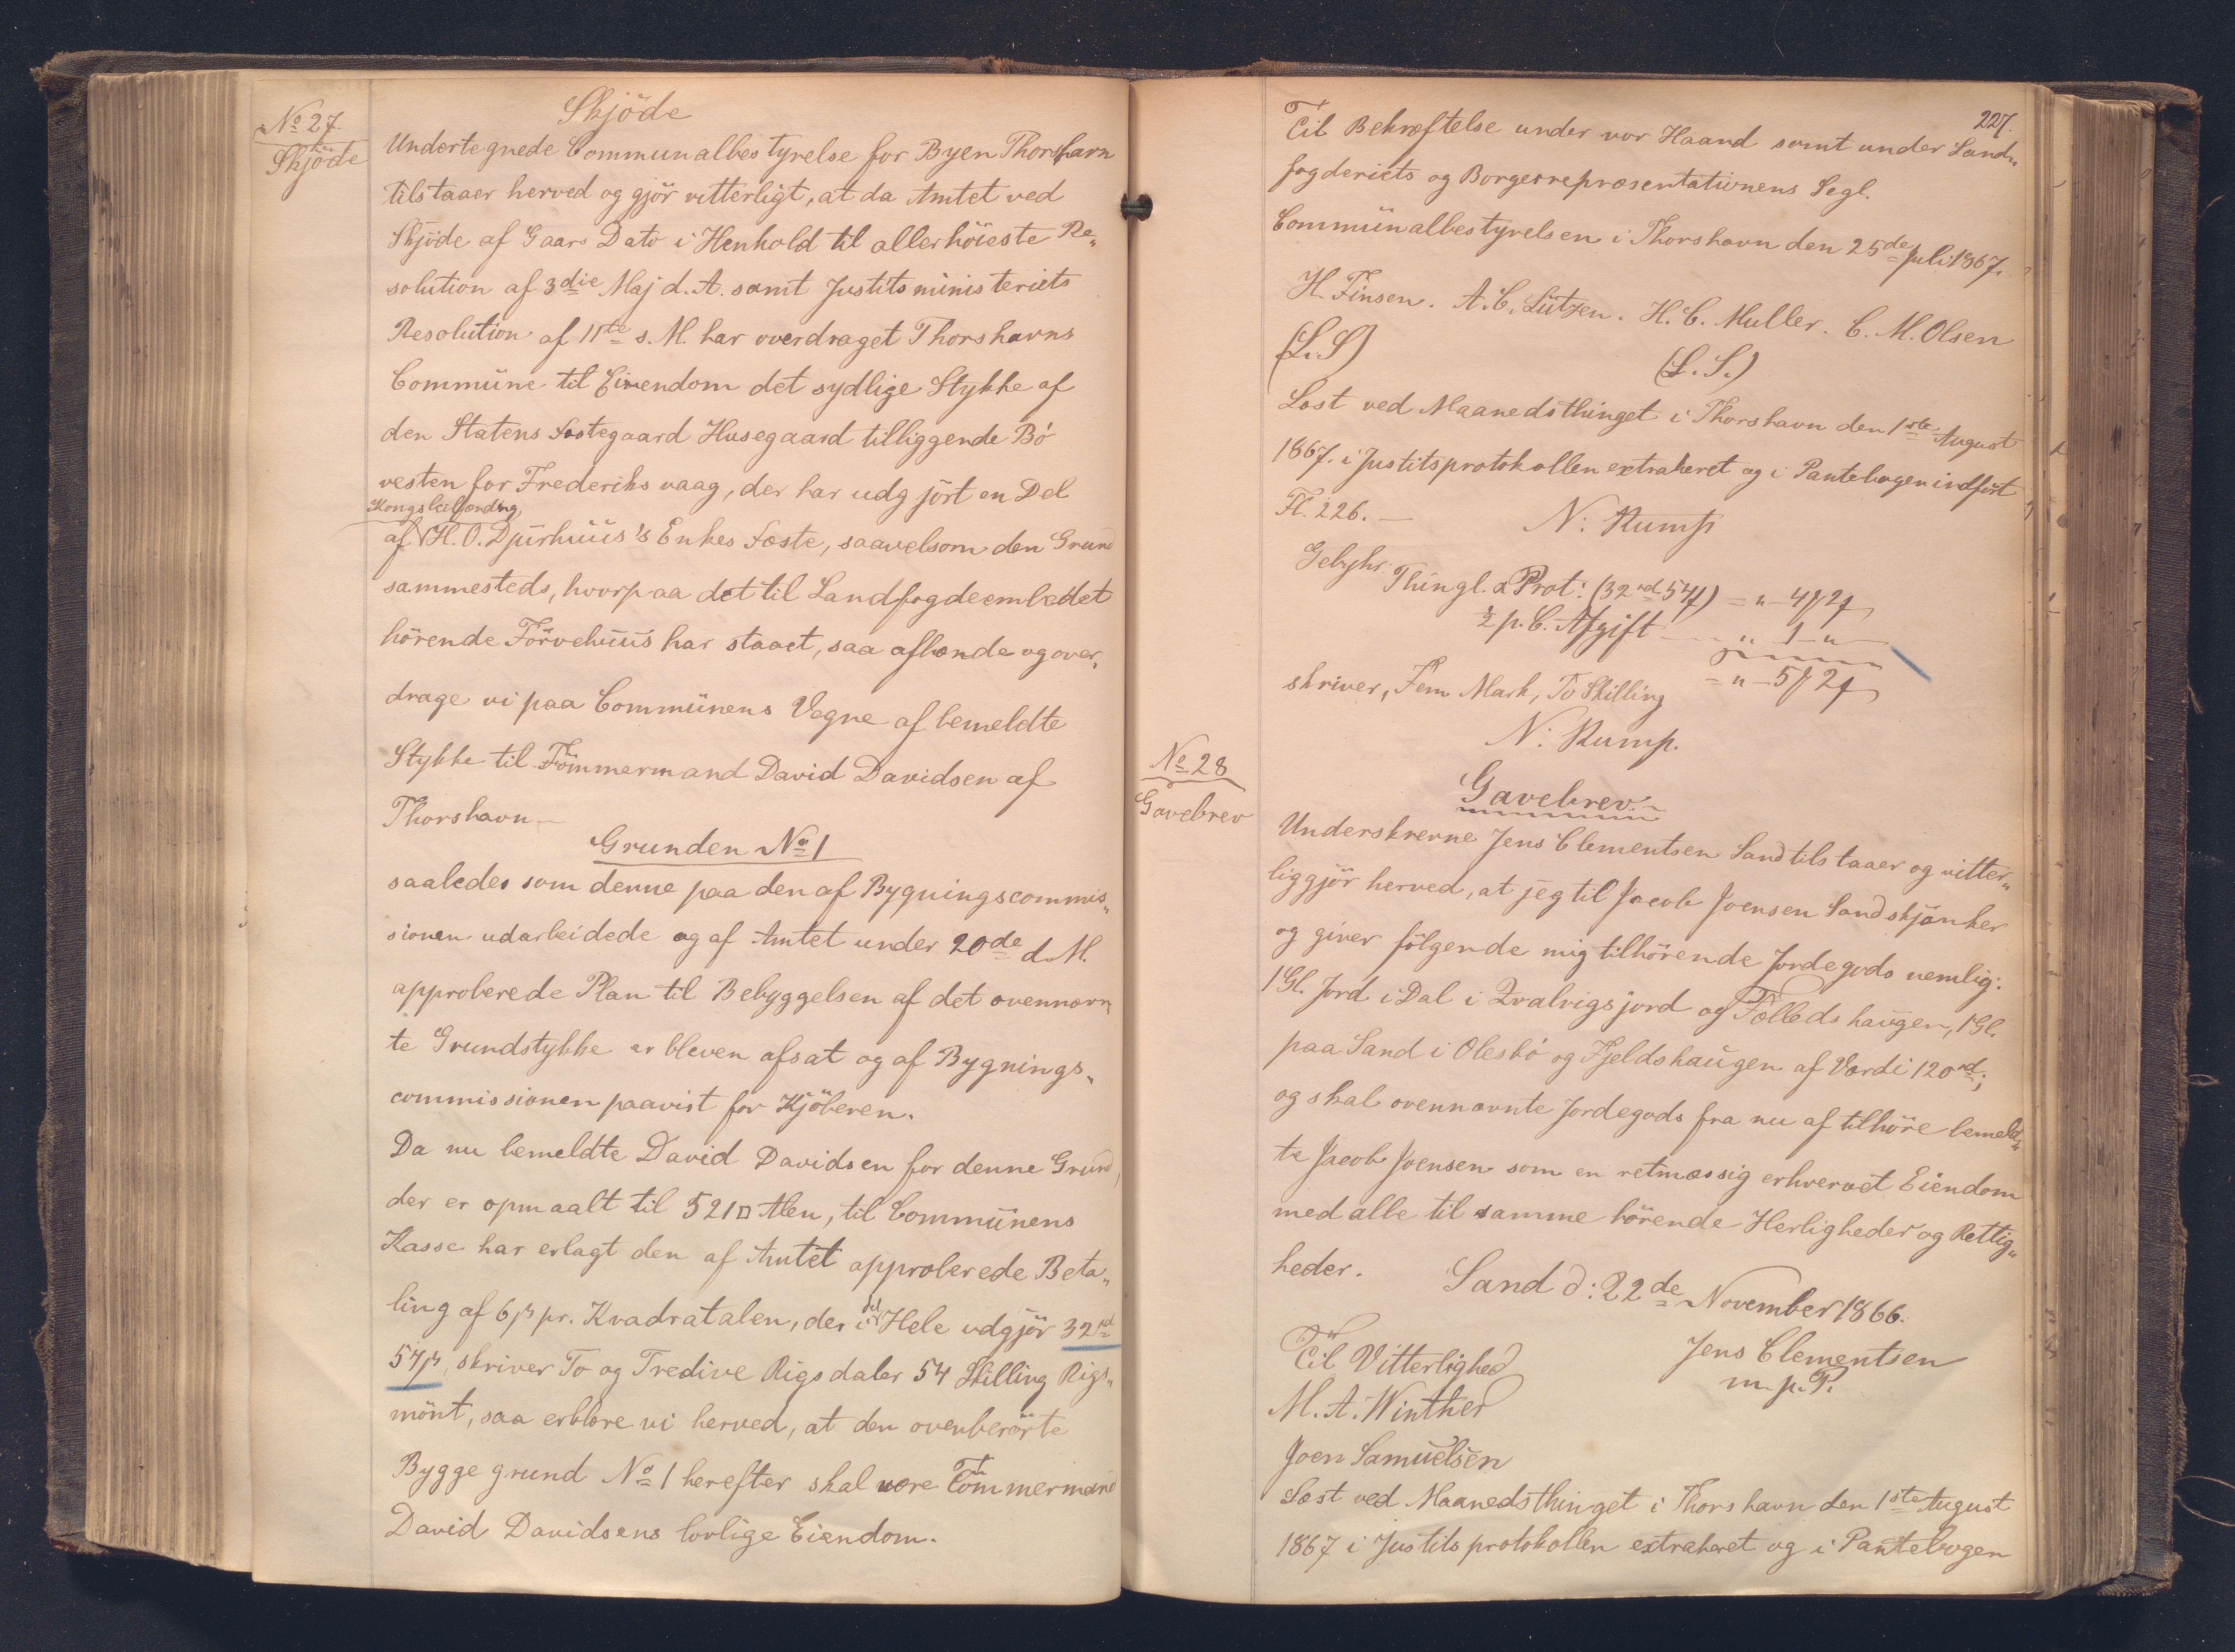 No 27
Skjöde
Skjöde
Undertegnede Communalbestyrelse for Byen Thorshavn
tilstaaer herved og gjör vitterligt, at da Amtet ved
Skjöde af Gaars Dato i Henhold til allerhöieste Re„
solution af 3die Maj d. A. samt Justitsministeriets
Resolution af 11te s. M. har overdraget Thorshavns
Commüne til Eiendom det sydlige Stykke af
den Statens Fæstegaard Husegaard tilliggende Bö
vesten for Frederiksvaag, der har udgjört en Del
af Kongsbilfordring H. O. Djürhuüs's Enkes Fæste, saavelsom den Grund
sammesteds, hvorpaa det til Landfogdeembedet
hörende Törvehuüs har staaet, saa afhænde og over„
drage vi paa Commünens Vegne af bemeldte
Stykke til Tömmermand David Davidsen af
Thorshavn —
Grunden No 1
saaledes som denne paa den af Bygningscommis„
sionen udarbeidede og af Amtet under 20de d. M.
approberede Plan til Bebyggelsen af det ovennævn„
te Grundstykke er bleven afsat og af Bygnings„
commissionen paavist for Kjöberen.
Da nu bemeldte David Davidsen for denne Grund,
der er opmaalt til 521 □ Alen, til Commünens
Kasse har erlagt den af Amtet approberede Beta„
ling af 6 ß pr. Kvadratalen, der i det Hele udgjör 32 rd
54 ß, skriver To og Tredive Rigsdaler 54 Skilling Rigs„
mönt, saa erklære vi herved, at den ovenberörte
Byggegrund No 1 herefter skal være Tömmermand
David Davidsens lovlige Eiendom.
227.
Til Bekræftelse under vor Haand samt under Land„
fogderiets og Borgerrepræsentationens Segl.
Commünalbestyrelsen i Thorshavn den 25de Juli 1867.
H. Finsen. A. C. Lützen. H. C. Muller. C. M. Olsen
(L.S) (L.S.)
Læst ved Maanedsthinget i Thorshavn den 1ste August
1867. i Justitsprotokollen extraheret og i Pantebogen indfört
Fl. 226. — N: Rump
Gebyhr. Thingl. & Prot: (32 rd 54 ß) = „ - 4 ₰ 2 ß
½ p. C. Afgift — „ 1 „ —
= „ - 5 ₰ 2 ß
skriver, Fem Mark, To Skilling
N: Rump.
No 28
Gavebrev
Gavebrev.
Underskrevne Jens Clementsen Sand tilstaaer og vitter„
liggjör herved, at jeg til Jacob Joensen Sand skjænker
og giver fölgende mig tilhörende Jordegods nemlig:
1 Gl. Jord i Dal i Qvalvigsjord og Fælledshaugen, 1 Gl.
paa Sand i Olesbö og Fjeldshaugen af Værdi 120 rd;
og skal ovennævnte Jordegods fra nu af tilhöre bemeld„
te Jacob Joensen som en retmæssig erhvervet Eiendom
med alle til samme hörende Herligheder og Rettig„
heder. Sand d: 22de November 1866.
Til Vitterlighed Jens Clementsen
M. A. Winther m. p. P.
Joen Samuelsen
Læst ved Maanedsthinget i Thorshavn den 1ste August
1867 i Justitsprotokollen extraheret og i Pantebogen